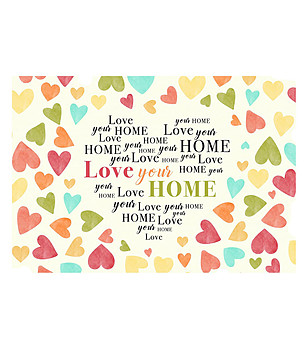 Love your HOME
your HOME Love your
Love HOME your HOME
HOME Love HOME
your Love HOME your
Love your HOME
your HOME Love HOME
your Love HOME your
HOME Love your
your HOME
Love